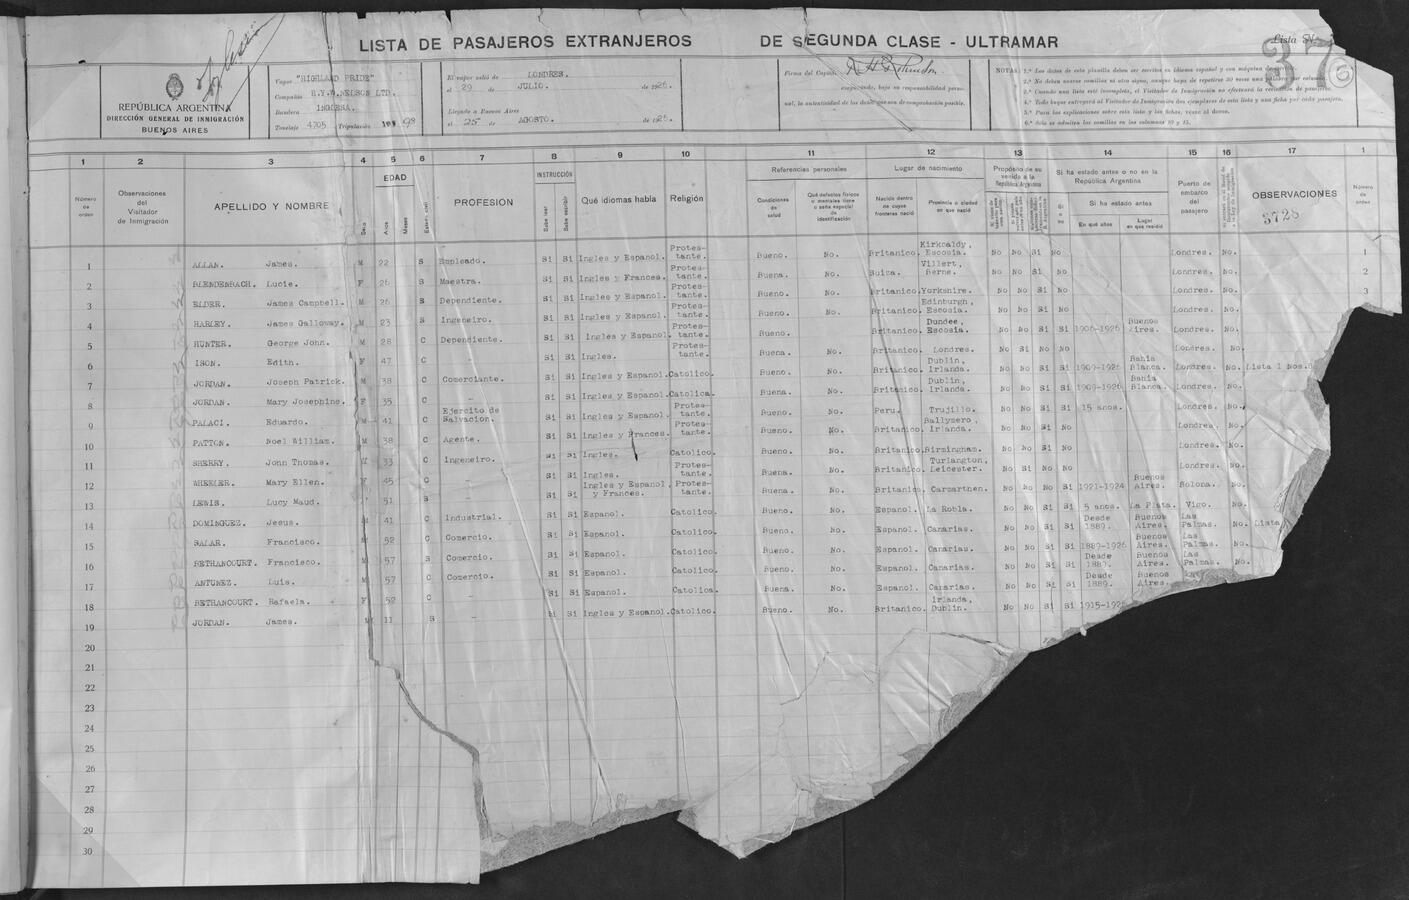 LISTA DE PASAJEROS EXTRANJEROS DE SEGUNDA CLASE - ULTRAMAR
Lista N.
37
6
REPÚBLICA ARGENTINA
DIRECCIÓN GENERAL DE INMIGRACIÓN
BUENOS AIRES
Vapor "HIGHLAND PRIDE"
Compañía H.Y.W.NELSON LTD.
Bandera INGLESA.
Tonelaje 4705 Tripulación 98
El vapor salió de LONDRES.
el 29 de JULIO. de 1926.
Llegando a Buenos Aires
el 25 de AGOSTO. de 1926.
Firma del Capitán
NOTAS:
1.ª Los datos de esta planilla deben ser escritos en idioma español y con máquina de escribir.
2.ª No deben usarse comillas ni otro signo, aunque haya de repetirse 30 veces una palabra por columna.
3.ª Cuando una lista esté incompleta, el Visitador de Inmigración no efectuará la recepción de pasajeros.
4.ª Todo buque entregará al Visitador de Inmigración dos ejemplares de esta lista y una ficha por cada pasajero.
5.ª Para las explicaciones sobre esta lista y las fichas, véase al dorso.
6.ª Sólo se admiten las comillas en las columnas 10 y 15.
1 2 3 4 5 6 7 8 9 10 11 12 13 14 15 16 17 1
Número de orden
Observaciones del Visitador de Inmigración
APELLIDO Y NOMBRE
Sexo
EDAD
Años
Meses
Estado civil
PROFESION
INSTRUCCIÓN
Sabe leer
Sabe escribir
Qué idiomas habla
Religión
Referencias personales
Condiciones de salud
Qué defectos físicos o mentales tiene o seña especial de identificación
Lugar de nacimiento
Nacido dentro de cuyas fronteras nació
Provincia o ciudad en que nació
Propósito de su venida a la República Argentina
Si ha estado antes o no en la República Argentina
Si o no
Si ha estado antes
En qué años
Lugar en que residió
Puerto de embarco del pasajero
OBSERVACIONES
3728
Número de orden
1 ALLAN. James. M 22 S Empleado. Si Si Ingles y Espanol. Protes-tante. Bueno. No. Britanico. Kirkcaldy, Escosia. No No Si No Londres. No. 1
2 BLENDENBACH. Lucie. F 26 S Maestra. Si Si Ingles y Frances. Protes-tante. Buena. No. Suiza. Villert, Berne. No No Si No Londres. No. 2
3 ELDER. James Campbell. M 26 S Dependiente. Si Si Ingles y Espanol. Protes-tante. Bueno. No. Britanico. Yorkshire. No No Si No Londres. No. 3
4 HARLEY. James Galloway. M 23 S Ingeneiro. Si Si Ingles y Espanol. Protes-tante. Bueno. No. Britanico. Edinburgh, Escosia. No No Si No Londres. No.
5 HUNTER. George John. M 28 C Dependiente. Si Si Ingles y Espanol. Protes-tante. Bueno. Britanico. Dundee, Escosia. No No Si Si 1906-1926 Buenos Aires. Londres. No.
6 ISON. Edith. F 47 C - Si Si Ingles. Protes-tante. Buena. No. Britanico. Londres. No Si No No Londres. No.
7 JORDAN. Joseph Patrick. M 38 C Comerciante. Si Si Ingles y Espanol. Catolico. Bueno. No. Britanico. Dublin, Irlanda. No No Si Si 1909-1926 Bahia Blanca. Londres. No. Lista 1 Nos.
8 JORDAN. Mary Josephine. F 35 C - Si Si Ingles y Espanol. Catolica. Buena. No. Britanico. Dublin, Irlanda. No No Si Si 1909-1926 Bahia Blanca. Londres. No.
9 PALACI. Eduardo. M 41 C Ejercito de Salvacion. Si Si Ingles y Espanol. Protes-tante. Bueno. No. Peru. Trujillo. No No Si Si 15 anos. Londres. No.
10 PATTON. Noel William. M 38 C Agente. Si Si Ingles y Frances. Protes-tante. Bueno. No. Britanico. Ballymero, Irlanda. No No Si No Londres. No.
11 SHERRY. John Thomas. M 33 C Ingeneiro. Si Si Ingles. Catolico. Bueno. No. Britanico. Birmingham. No No Si No Londres. No.
12 WHEELER. Mary Ellen. F 45 C - Si Si Ingles. Protes-tante. Buena. No. Britanico. Turlangton, Leicester. No Si No No Londres. No.
13 LEWIS. Lucy Maud. 51 S - Si Si Ingles y Espanol y Frances. Protes-tante. Buena. No. Britanico. Carmarthen. No No No Si 1921-1924 Buenos Aires. Bolona. No.
14 DOMINGUEZ. Jesus. M 41 C Industrial. Si Si Espanol. Catolico. Bueno. No. Espanol. La Robla. No No Si Si 5 anos. La Plata. Vigo. No.
15 SALAR. Francisco. M 52 C Comercio. Si Si Espanol. Catolico. Bueno. No. Espanol. Canarias. No No Si Si Desde 1889. Buenos Aires. Las Palmas. No. Lista
16 BETHANCOURT. Francisco. M 57 S Comercio. Si Si Espanol. Catolico. Bueno. No. Espanol. Canarias. No No Si Si 1889-1926 Buenos Aires. Las Palmas. No.
17 ANTUNEZ. Luis. M 57 C Comercio. Si Si Espanol. Catolico. Bueno. No. Espanol. Canarias. No No Si Si Desde 1889. Buenos Aires. Las Palmas. No.
18 BETHANCOURT. Rafaela. F 52 C - Si Si Espanol. Catolica. Buena. No. Espanol. Canarias. No No Si Si Desde 1889. Buenos Aires.
19 JORDAN. James. M 11 S - Si Si Ingles y Espanol. Catolico. Bueno. No. Britanico. Irlanda, Dublin. No No Si Si 1915-1926
20
21
22
23
24
25
26
27
28
29
30